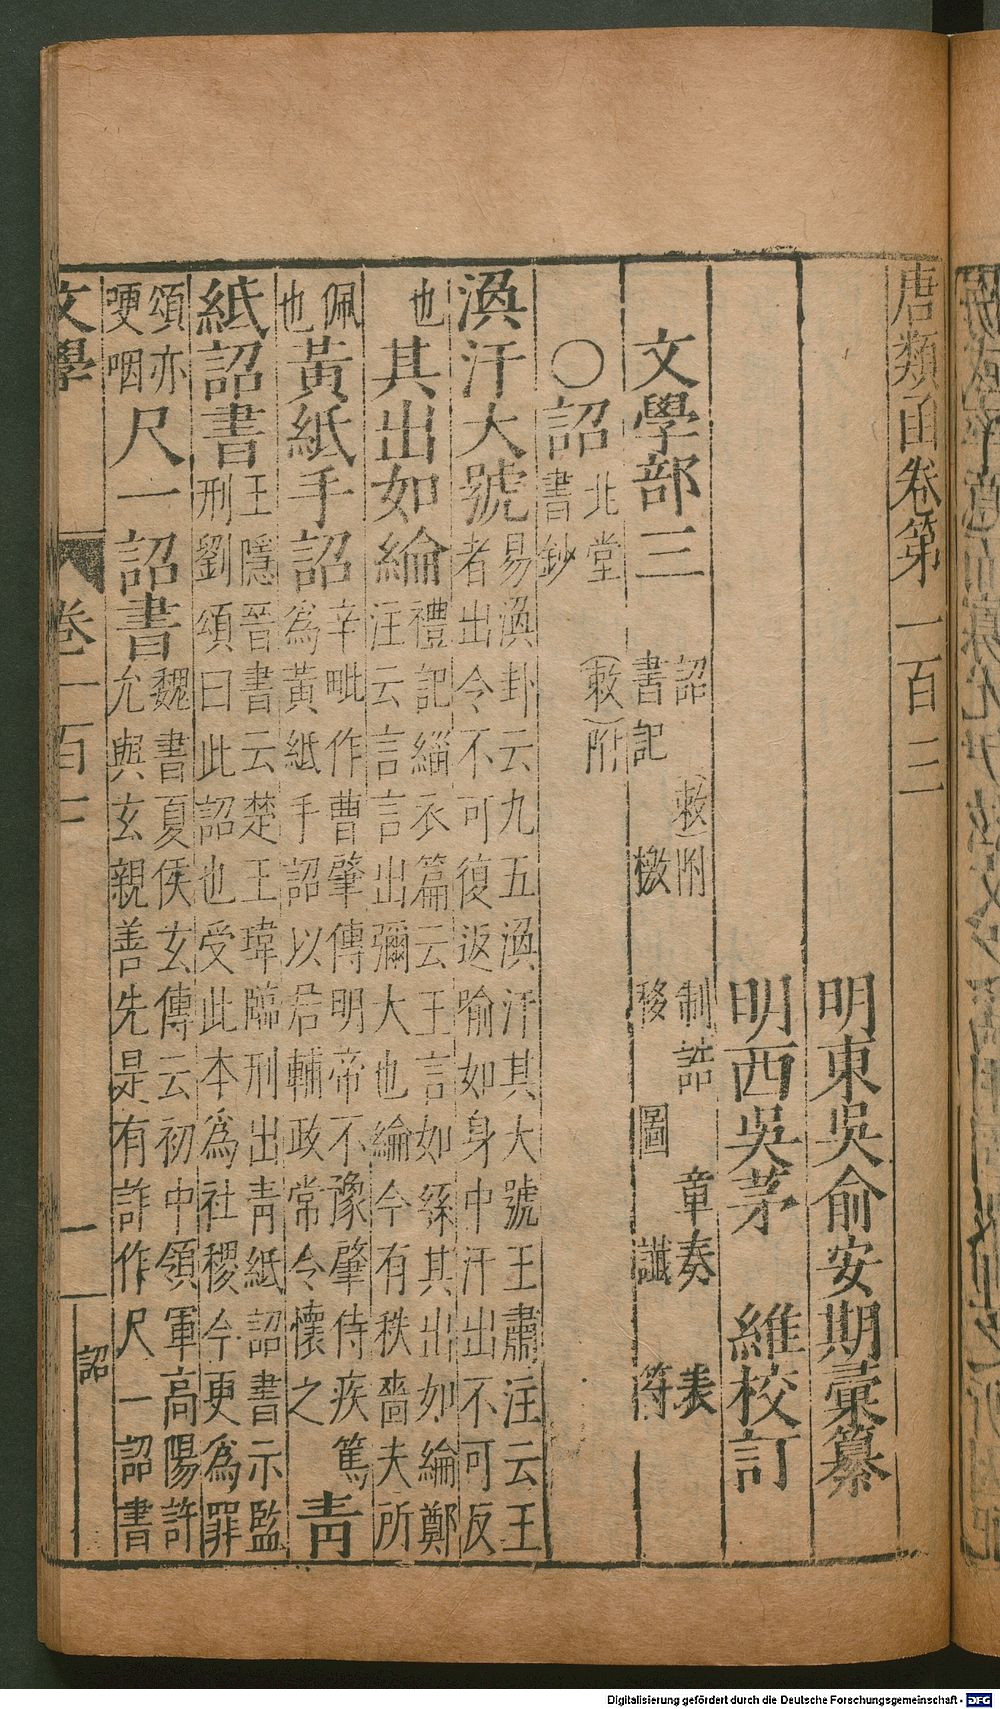 唐類函卷第一百三
明東吳俞安期彙纂
明西吳茅 維校訂
文學部三 詔 (敕)附 制誥 章奏 表
書記 檄 移 圖 讖 符
○詔 北堂書鈔 (敕)附
渙汗大號 易渙卦云九五渙汗其大號王肅注云王
者出令不可復返喻如身中汗出不可反
也 其出如綸 禮記緇衣篇云王言如絲其出如綸鄭
注云言言出彌大也綸今有秩嗇夫所
佩
也 黃紙手詔 辛毗作曹肇傳明帝不豫肇侍疾篤
為黃紙手詔以君輔政常令懷之 靑
紙詔書 王隱晉書云楚王瑋臨刑出靑紙詔書示監
刑劉頌曰此詔也受此本為社稷今更為罪
頌亦
哽咽 尺一詔書 魏書夏侯玄傳云初中領軍高陽許
允與玄親善先是有詐作尺一詔書
文學 卷一百三 一 詔
Digitalisierung gefördert durch die Deutsche Forschungsgemeinschaft - DFG